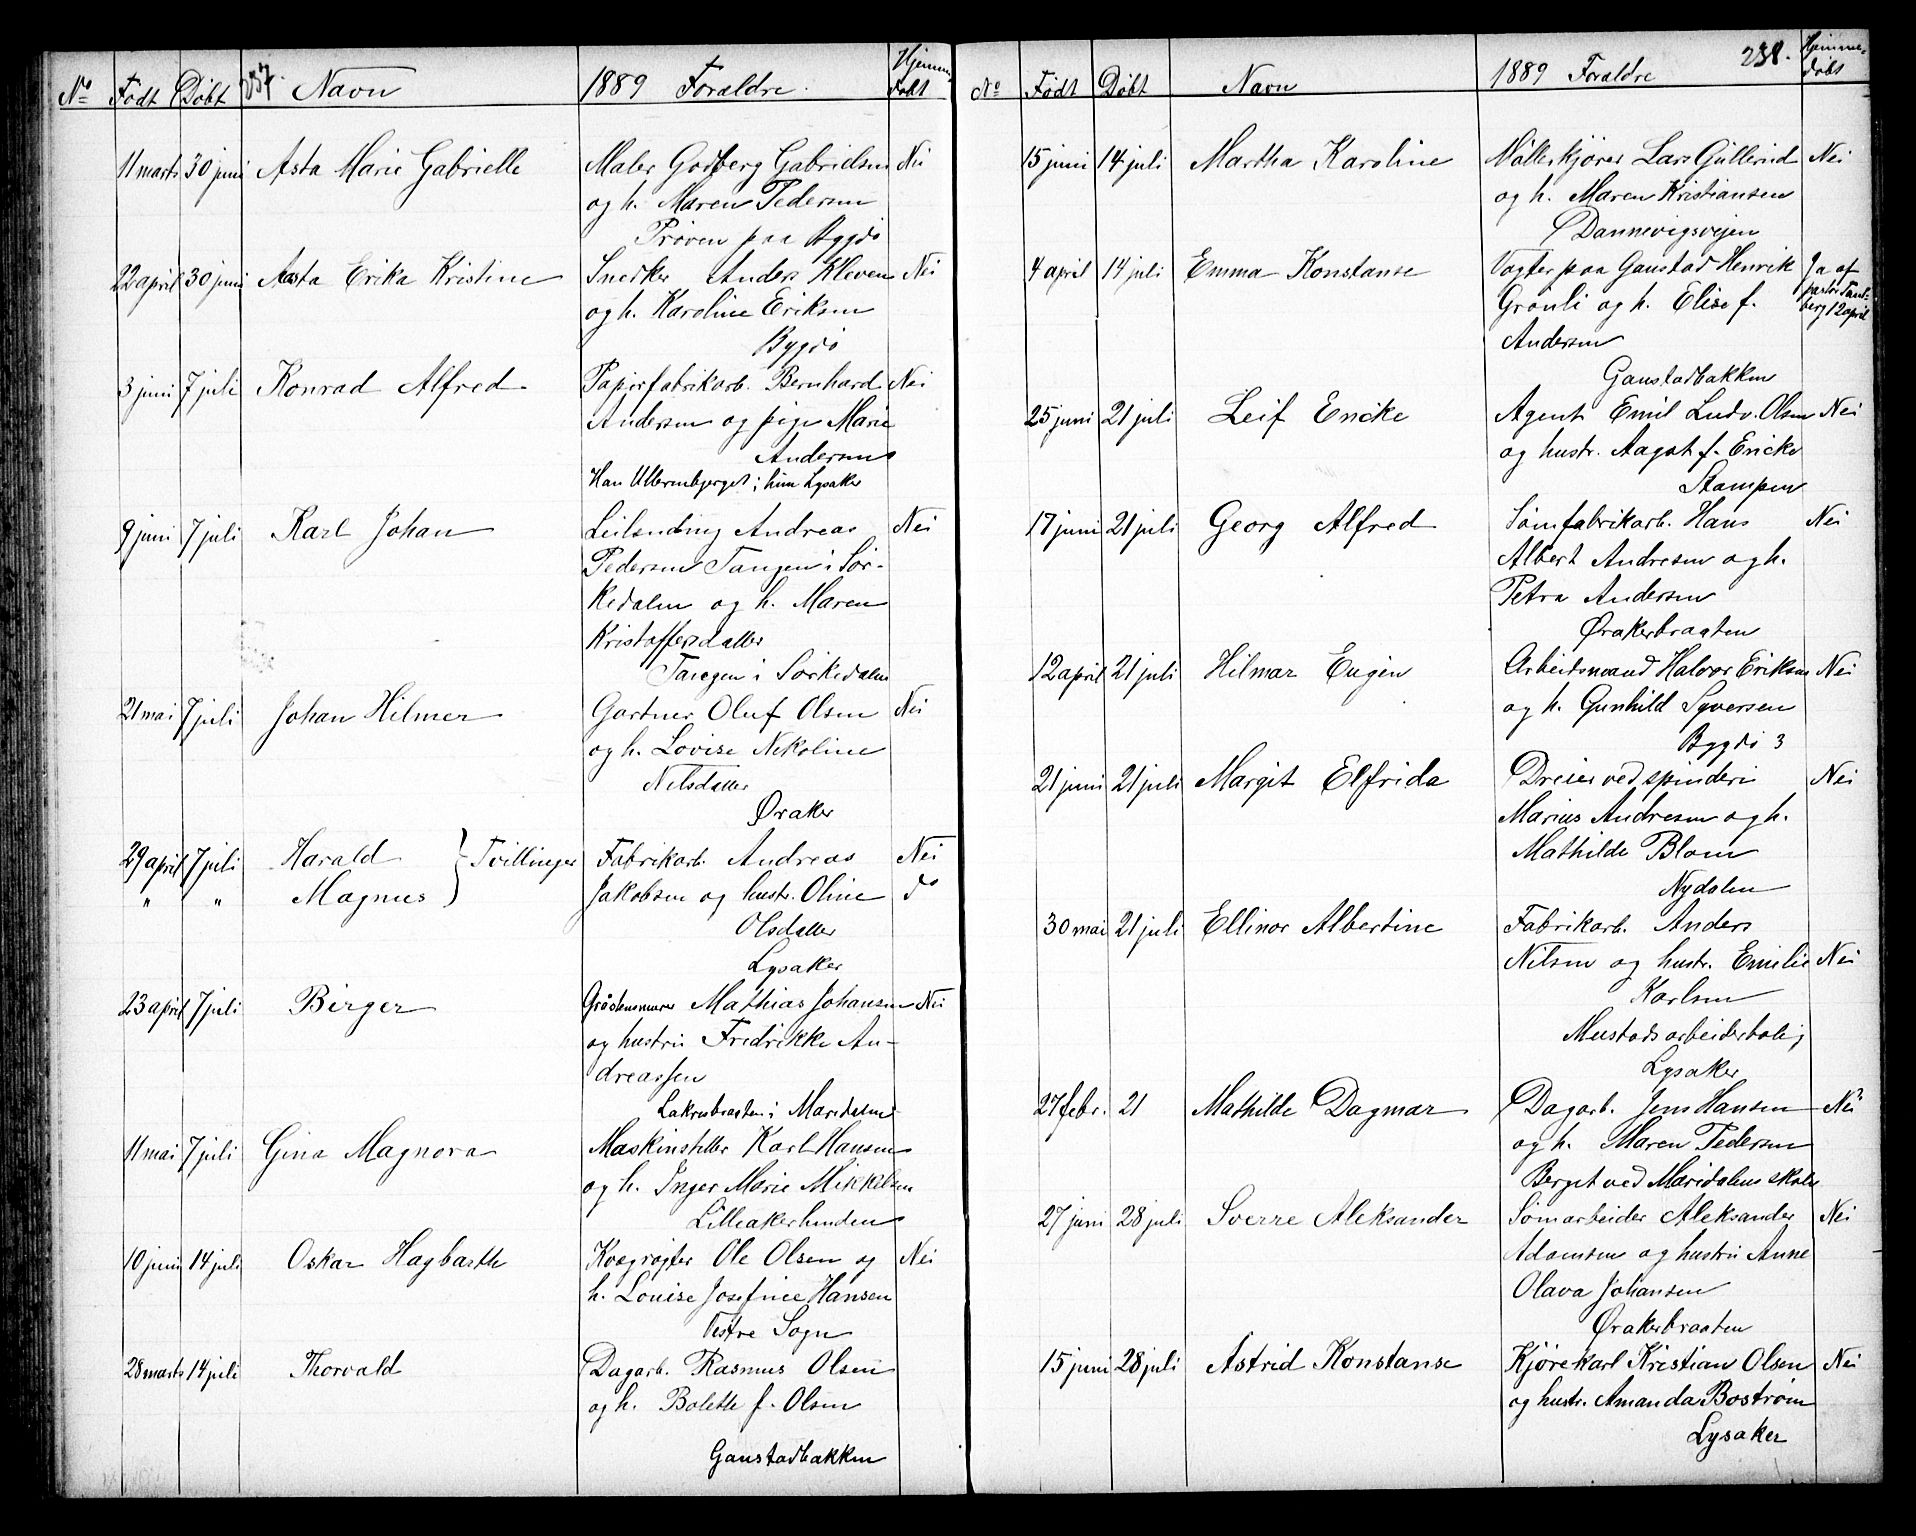 No Født Døbt 237. Navn 1889 Foraldre. Hjemmedøbt
11 marts 30 juni Asta Marie Gabrielle Maler Godberg Gabrielsen Nei
og h. Maren Pedersen
Prøven paa Bygdø
22 april 30 juni Asta Erika Kristine Snedker Anders Kleven Nei
og h. Karoline Eriksen
Bygdø
3 juni 7 juli Konrad Alfred Papirfabrikarb. Bernhard Nei
Andersen og pige Marie
Andersen
Han Ullernbjerget; hun Lysaker
9 juni 7 juli Karl Johan Leilending Andreas Nei
Pedersen Tangen i Sør-
kedalen og h. Maren
Kristoffersdatter
Tangen i Sørkedalen
21 mai 7 juli Johan Hilmer Gartner Oluf Olsen Nei
og h. Lovise Nikoline
Nilsdatter
Øraker
29 april 7 juli Harald } Tvillinger Fabrikarb. Andreas Nei
" " Magnus Jakobsen og hustr. Oline do
Olsdatter
Lysaker
23 april 7 juli Birger Mathias Johansen Nei
og hustru Fredrikke An-
dreassen
i Maridalen
11 mai 7 juli Gina Magnora Maskinstiller Karl Hansen
og h. Inger Marie Mikkelsen
Lilleakerlunden
10 juni 14 juli Oskar Hagbarth Kvægrøgter Ole Olsen og Nei
h. Louise Josefine Hansen
Vestre Sogn
28 marts 14 juli Thorvald Dagarb. Rasmus Olsen
og h. Bolette f. Olsen
Gaustadbakken
No Født Døbt Navn 1889 Foraldre 238. Hjemmedøbt
15 juni 14 juli Martha Karoline Møllerkjører Lars Gullerud Nei
og h. Maren Kristiansen
Dannevigsvejen
4 april 14 juli Emma Konstanse Vogter paa Gaustad Henrik Ja af
Grønli og h. Elise f. pastor
Andersen 12 april
Gaustadbakken
25 juni 21 juli Leif Encke Agent Emil Ludv. Olsen Nei
og hustr. Aagot f. Encke
Stampen
17 juni 21 juli Georg Alfred Sømfabrikarb. Hans Nei
Albert Andresen og h.
Petra Andersen
Ørakerbraaten
12 april 21 juli Hilmar Eugen Arbeidsmand Halvor Eriksen Nei
og h. Gunhild Syversen
Bygdø 3
21 juni 21 juli Margit Elfrida Dreier ved spinderi Nei
Marius Andresen og h.
Mathilde Blom
Nydalen
30 mai 21 juli Ellinor Albertine Fabrikarb. Anders
Nilsen og hustr. Emilie Nei
Karlsen
Mustads arbeiderbolig
Lysaker
27 febr. 21 Mathilde Dagmar Dagarb. Jens Hansen Nei
og h. Maren Pedersen
Berget ved Maridalens skole
27 juni 28 juli Sverre Aleksander Sømarbeider Aleksander Nei
Adamsen og hustru Anne
Olava Johansen
Ørakerbraaten
15 juni 28 juli Astrid Konstanse Kjørekarl Kristian Olsen Nei
og hustr. Amanda Bostrøm
Lysaker